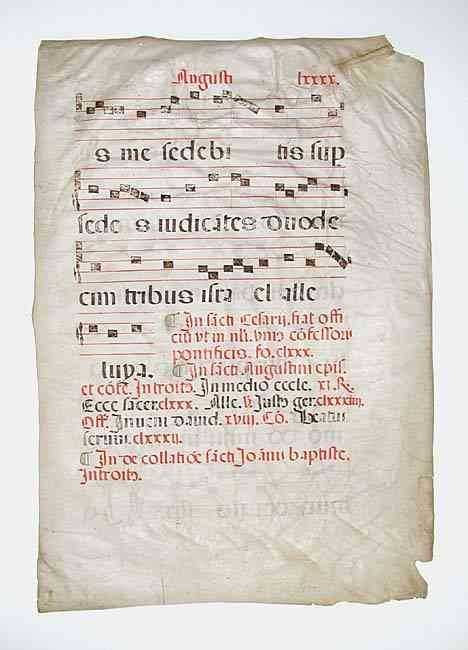 Augusti lxxx.
s me sedebi tis sup
sede s iudicātes duode
cim tribus isra el alle
¶ In sācti Cesarij. fiat offi
ciū vt in nr̄i. vniꝰ cōfessoris
pontificis. fo. clxxx.
luya. ¶ In sācti Augustini epīs.
et cōfe. Introitꝰ. In medio eccle. xi. R.
Ecce sacer. clxxx. Alle. V. Justꝰ ger. clxxxiiij.
Off. Inueni dauid. xviij. Cō. Beatꝰ
seruus. clxxxij.
¶ In decollatiōe sācti Joānis baptiste.
Introitꝰ.